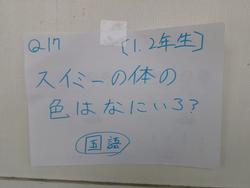 Q17 [1.2年生]
スイミーの体の
色はなにいろ?
国語